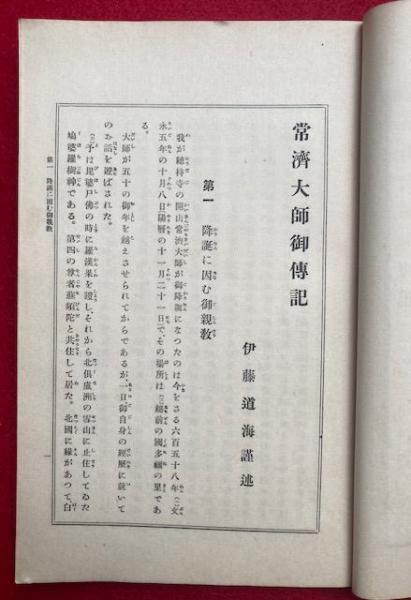 常濟大師御傳記
伊藤道海謹述
第一 降誕に因む御親敎
我が總持寺の開山常濟大師が御降誕になつたのは今をさる六百五十八年(一)文
永五年の十月八日陽曆の十一月二十一日で、その場所は(二)越前の國多禰の里であ
る。
大師が五十の御年を越えさせられてからであるが、一日御自身の經歷に就いて
のお話を遊ばされた。
(三)予は毘婆尸佛の時に羅漢果を證し、それから北俱盧洲の雪山に止住してゐた
鳩婆羅樹神である。第四の尊者蘇頻陀と共住して居た。北國に緣があつて、白
第一 降誕に因む御親敎
一